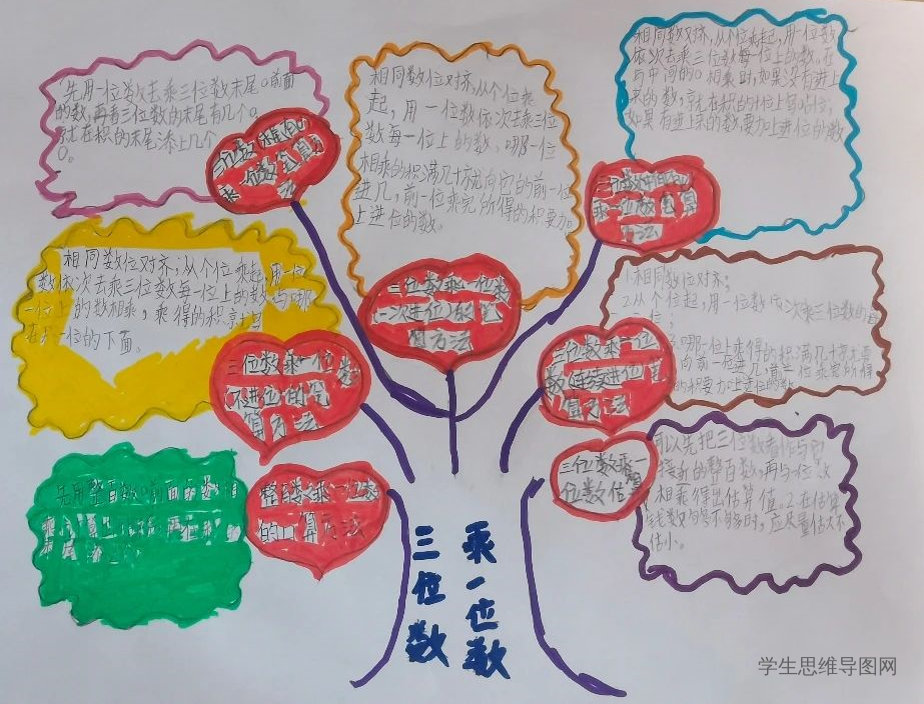 先用一位数去乘三位数末尾0前面
的数,再看三位数的末尾有几个0,
就在积的末尾添上几个
0。
三位数末尾有0
乘一位数
相同数位对齐,从个位乘
起,用一位数依次去乘三位
数每一位上的数,哪一位
相乘的积满几十就向它的前一位
进几,前一位乘完所得的积要加
上进位的数。
三位数乘一位数
一次进位)的笔
算方法
相同数对齐,从个位乘起,用一位数
依次去乘三位数每一位上的数。在
与中间的0相乘时,如果没有进上
来的数,就在积的十位上写0占位,
如果有进上来的数,要加上进位的数
三位数中间有0
乘一位数笔算
方法
相同数位对齐,从个位乘起,用一位
数依次去乘三位数每一位上的数与哪
一位上的数相乘,乘得的积
一位的下面。
三位数乘一位数
不进位的笔
算方法
1.相同数位对齐;
2.从个位起,用一位数依次乘三位数的
三位数乘一位
数连续进位笔
算方法
先用整百数0前面的数
整百数乘一位数
的口算方法
可以先把三位数看作与它
接近的整百数,再与一位数
相乘得出估算值。2.在估算
钱数够不够时,应尽量估大不
估小。
三位数乘一
位数估算
三位数
乘一位数
学生思维导图网